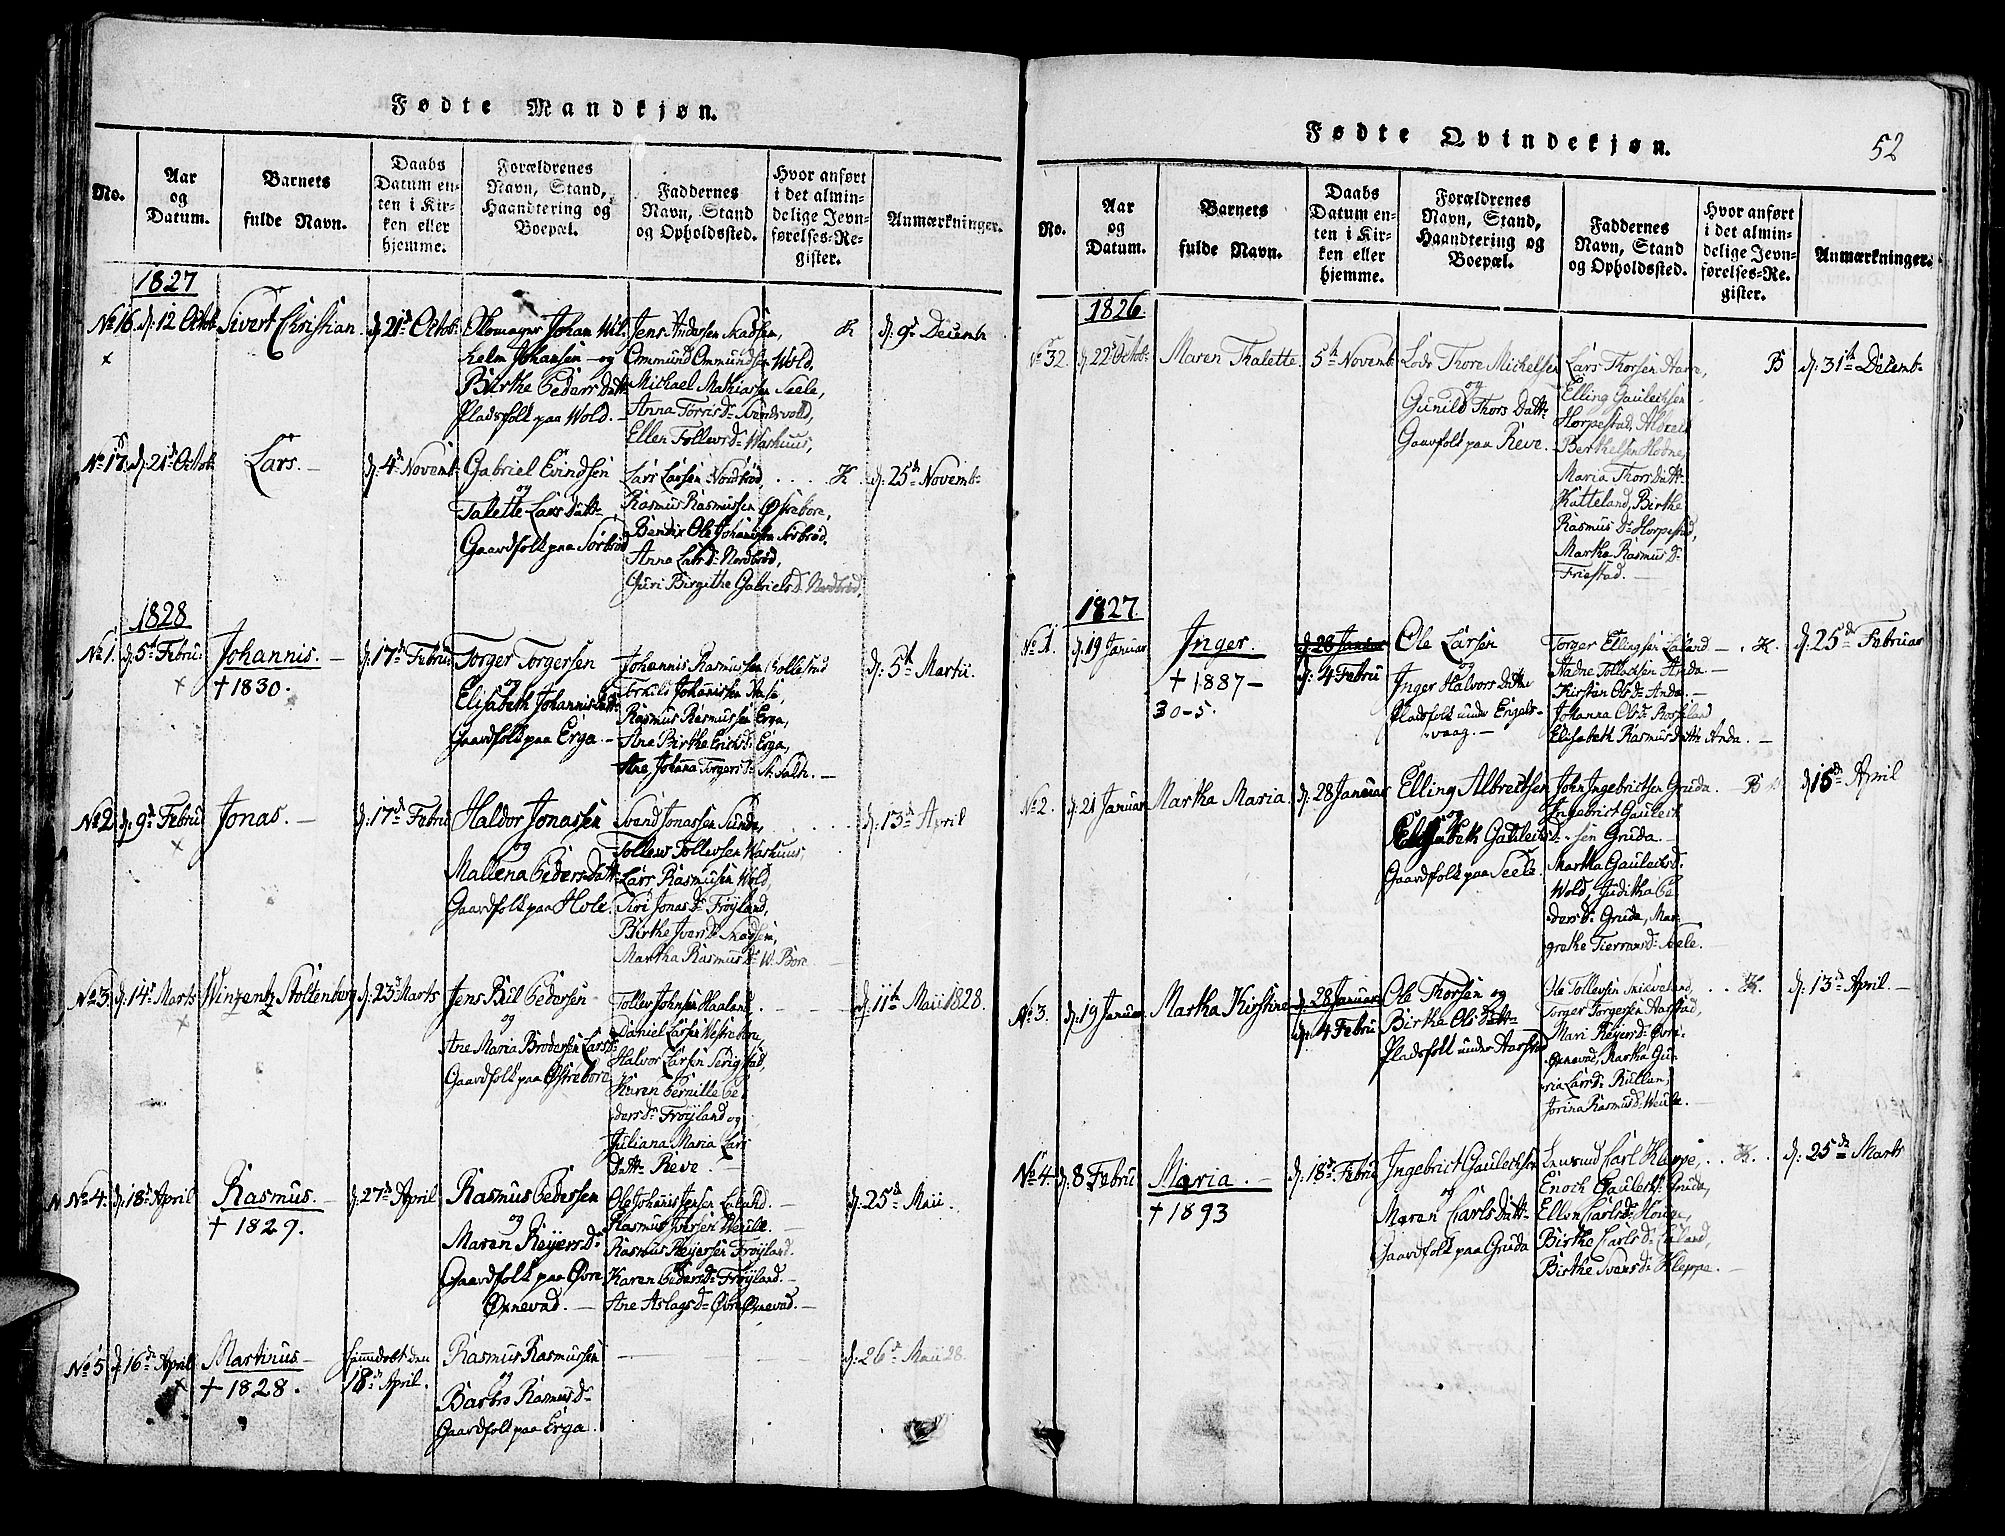 Fødte Mandkjøn.
No.
Aar
og
Datum.
Barnets
fulde Navn.
Daabs
Datum en-
ten i Kir-
ken eller
hjemme.
Forældrenes
Navn, Stand,
Haandtering og
Boepæl.
Faddernes
Navn, Stand
og Opholdssted.
Hvor anført
i det almin-
delige Jevn-
førelses-Re-
gister.
Anmærkninger.
1827
No 16. d: 12 Octob. Sivert Christian. d. 21d Octob.
Johan Wil-
helm Johansen - og
Birthe Peders Datt.
Pladsfolk paa Wold. -
Jens Andersen Skadsem,
Ommund Ommundsen Wold,
Michael Mathiassen Seele,
Anna Torrisd:
Ellen Tollevsd: Warhuus,
K d. 9d Decemb
No 17. d. 21d Octob. Lars. - d. 4d Novemb.
Gabriel Evindsen
og
Talette Lars Datt.
Gaardfolk paa Sørbrød
Lars Larsen Nordbrød,
Rasmus Rasmussen Østrebore,
Ole Johannsen Sørbrød.
Anna Larsd: Nordbrød,
Guri Birgithe Gabrielsd. Nordbrød.
K. d. 25d Novemb.
1828
No 1. d. 5th Febru Johannis. -
+ 1830.
d. 17d Febru
Torger Torgersen
og
Elisabeth Johannis Datt.
Gaardfolk paa Erga. -
Johannis Rasmussen
Johannissen
Rasmus Rasmussen Erga,
Ane Birthe Ericsd: Erga,
Ane Johana Torgersd:
d: 5th Martii.
No 2. d. 9d Febru Jonas. - d. 17d Febru
Haldor Jonassen
og
Mallena Peders Datt.
Gaardfolk paa Hole.
Svend Jonassen Sunde,
Tollew Tollevsen Warhuus,
Lars Rasmusen Wold,
Siri Jonasd. Frøyland,
Birthe Iversd. Skadsem,
Martha Rasmusd: W. Bore
d: 13d April
No 3. d: 14d Marts Winzentz Stoltenberg d: 23d Marts
Jens Bul Pedersen
og
Ane Maria Brodersen Larsd:
Gaardfolk paa Østrebore
Tollev Johnsen Haaland,
Daniel Larsen Vestrebore,
Halvor Larsen Serigstad,
Karen Pernille Pe-
dersd: Frøyland og
Juliana Maria Lars
Datt. Reve. -
d: 11th Maii 1828.
No 4. d. 18d April Rasmus. -
+ 1829.
d: 27d April
Rasmus Pedersen
og
Maren Reyersd:
Gaardfolk paa Øvre
Ørnevad. -
Ole Johannis Jensen Laland. -
Rasmus Iversen Weule. -
Rasmus Reyersen Frøyland.
Karen Pedersd: Frøyland. -
Ane Aslagsd: Øvre Ørnevad. -
d: 25d Maii.
No 5. d: 16d April Martinus -
+ 1828.
hjemedøbt den
18d April.
Rasmus Rasmussen
og
Barbro Rasmusd:
Gaardfolk paa Erga.
d: 26d Maii 28.
Fødte Qvindekjøn.
52
No.
Aar
og
Datum.
Barnets
fulde Navn.
Daabs
Datum en-
ten i Kir-
ken eller
hjemme.
Forældrenes
Navn, Stand,
Haandtering og
Boepæl.
Faddernes
Navn, Stand
og Opholdssted.
Hvor anført
i det almin-
delige Jevn-
førelses-Re-
gister.
Anmærkninger.
1826.
No 32. d. 22d Octob. Maren Thalette. 5th Novemb.
Lods Thore Michelsen
og
Gunild Thors Datt.
Gaardfolk paa Reve.
Lars Thorsen
Elling Gaulechsen
Horpestad,
Berthelsen Hodne,
Maria Thors Datt.
Katteland, Birthe
Rasmus D: Horpestad,
Martha Rasmus D:
Friestad. -
B d: 31th Decemb.
1827.
No 1. d: 19 Januar Inger.
+ 1887 -
30-5.
d: 28 Januar
d: 4 Febru
Ole Larsen
og
Inger Halvors Datter
Pladsfolk under Engels-
vaag. -
Torger Ellingsen Laland -
Tollechsen Anda -
Kirsten Olsd: Anda. -
Johanna Olsd:
Elisabeth Rasmus Datt. Anda. -
K. d: 25d Februar
No 2. d. 21 Januar Martha Maria. d. 28 Januar
Elling Albretsen
og
Elisabeth Gaulechsd.
Gaardfolk paa Seele.
John Ingebritsen Gruda. -
Ingebrict Gaulech
sen Gruda. -
Martha Gaulechsd.
Wold, Juditha Pe
dersd: Gruda, Mar-
grethe Tierransd: Seele. -
B d 15d April
No 3. d: 19 Januar Martha Kirstine
d. 28 Januar
d: 4 Febru
Ole Thorsen og
Birtha Ols Datt.
Pladsfolk under Aarstad
Ole Tollevsen
Torger Torgersen Aarstad,
Mari Reyersd: Øvre-
Ørnevad, Martha Gu-
ria Larsd: Rullan,
Jorina Rasmusd: Weule. -
K. d: 13d April. -
No 4. d. 8 Febru Maria. -
+ 1893
d: 18d Febru
Ingebrict Gaulechsen
og
Maren Carls Datt.
Gaardfolk paa Gruda
Carl Kleppe,
Enoch Gaulechs: Gruda,
Ellen Carlsd: Houge,
Birthe Carlsd: Laland,
Birthe Svensd: Kleppe. -
K. d: 25d Marts